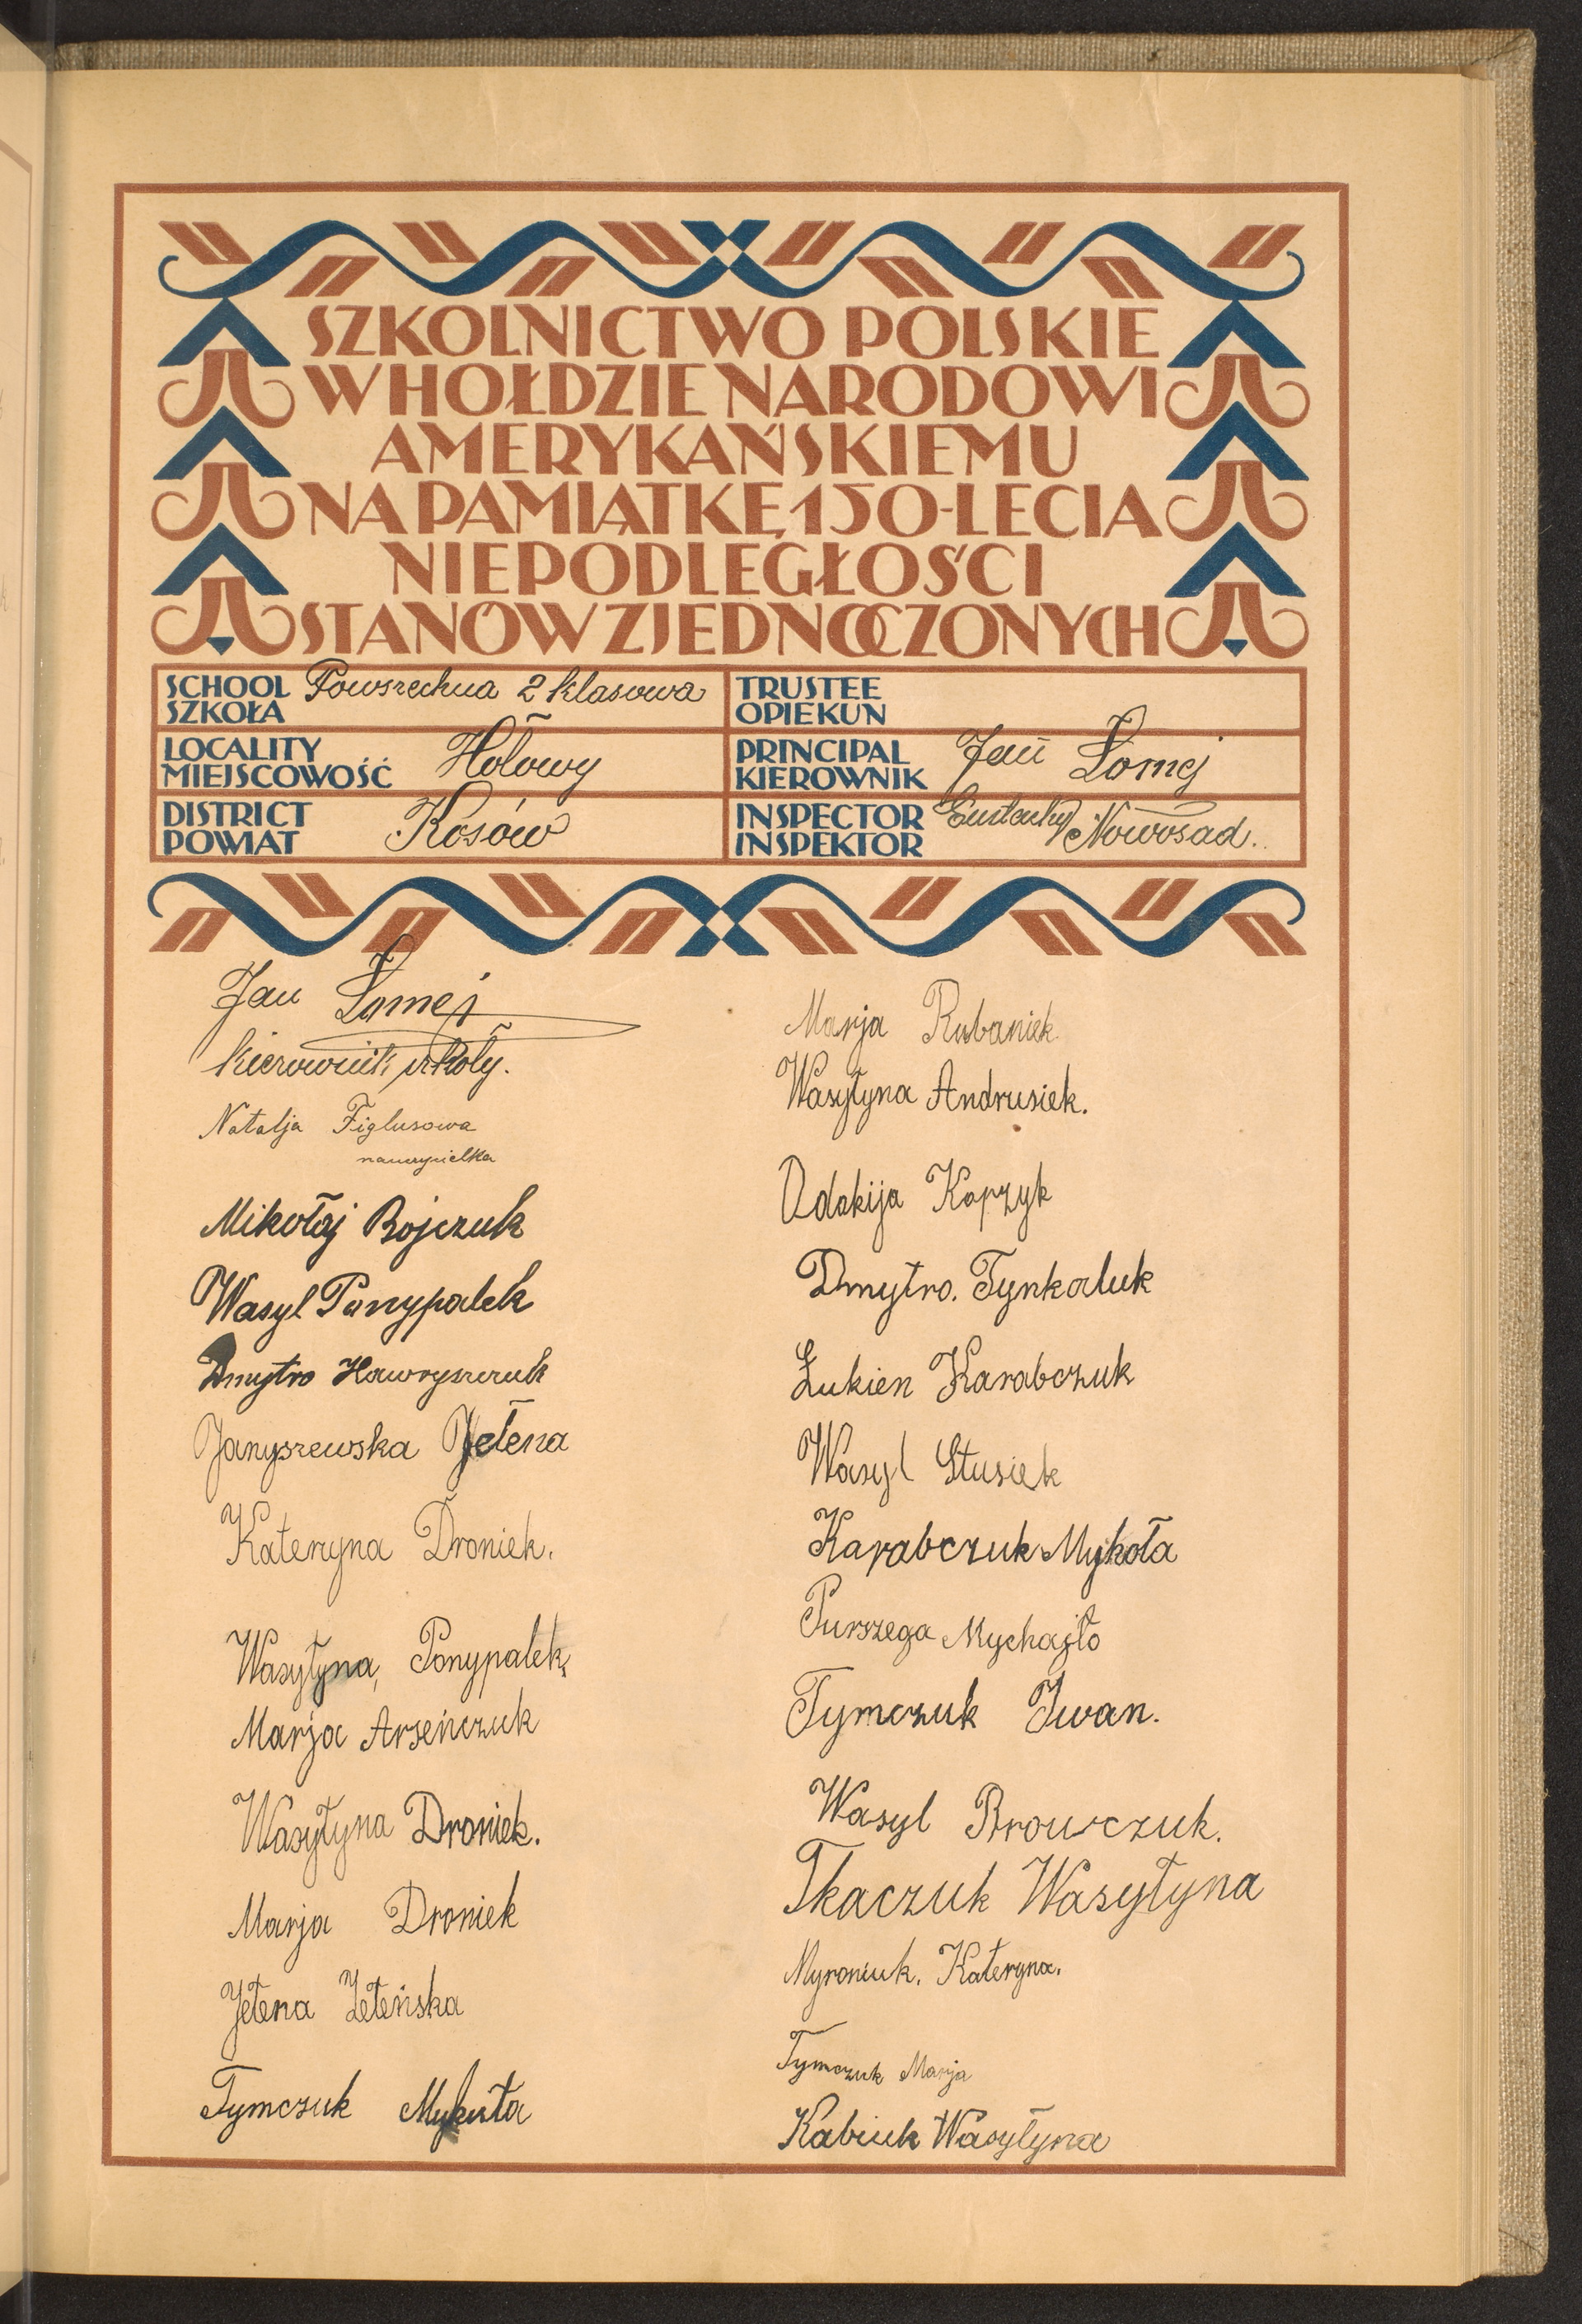 SZKOLNICTWO POLSKIE
W HOŁDZIE NARODOWI
AMERYKAŃSKIEMU
NA PAMIĄTKĘ 150-LECIA
NIEPODLEGŁOŚCI
STANÓW ZJEDNOCZONYCH
SCHOOL Powszechna 2 klasowa
SZKOŁA
TRUSTEE
OPIEKUN
LOCALITY Hołowy
MIEJSCOWOŚĆ
PRINCIPAL Jan Łomej
KIEROWNIK
DISTRICT Kosów
POWIAT
INSPECTOR Eustachy Nowosad.
INSPEKTOR
Jan Łomej
kierownik szkoły.
Natalja Figlusowa
nauczycielka
Mikołaj Bojczuk
Wasyl Ponypalek
Dmytro Hawryszczuk
Janyszewska Jełena
Kateryna Droniek.
Wasyłyna, Ponypalek,
Marja Arseńczuk
Wasyłyna Droniek.
Marja Droniek
Jełena Zełeńska
Tymczuk Mykuła
Marja Rubaniek
Wasyłyna Andrusiek.
Odokija Kopzyk
Dmytro. Tynkaluk
Łukien Karabczuk
Wasyl Stusiek
Karabczuk Mykoła
Purszega Mychajło
Tymczuk Iwan.
Wasyl Browczuk.
Tkaczuk Wasyłyna
Myroniuk. Kateryna.
Tymczuk Marja
Kabiuk Wasyłyna